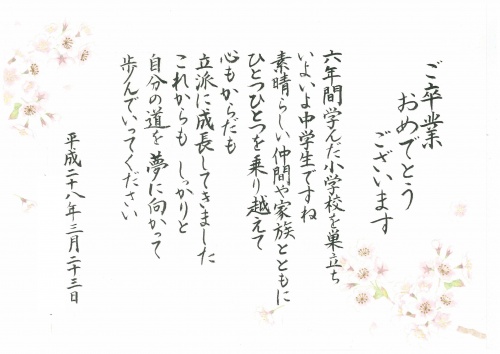 ご卒業
おめでとう
ございます
六年間学んだ小学校を巣立ち
いよいよ中学生ですね
素晴らしい仲間や家族とともに
ひとつひとつを乗り越えて
心もからだも
立派に成長してきました
これからも しっかりと
自分の道を夢に向かって
歩んでいってください
平成二十八年三月二十三日